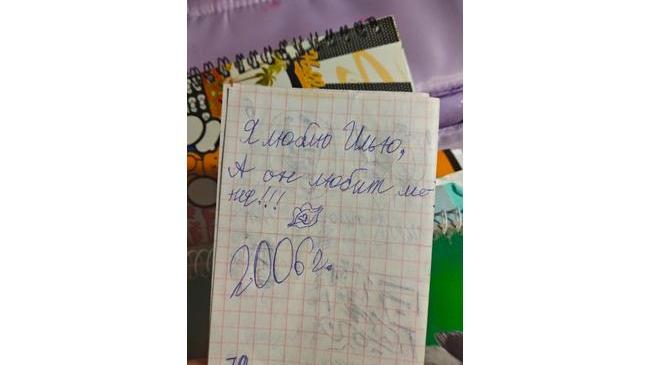 Я люблю Илью,
А он любит ме
ня!!!
2006г.